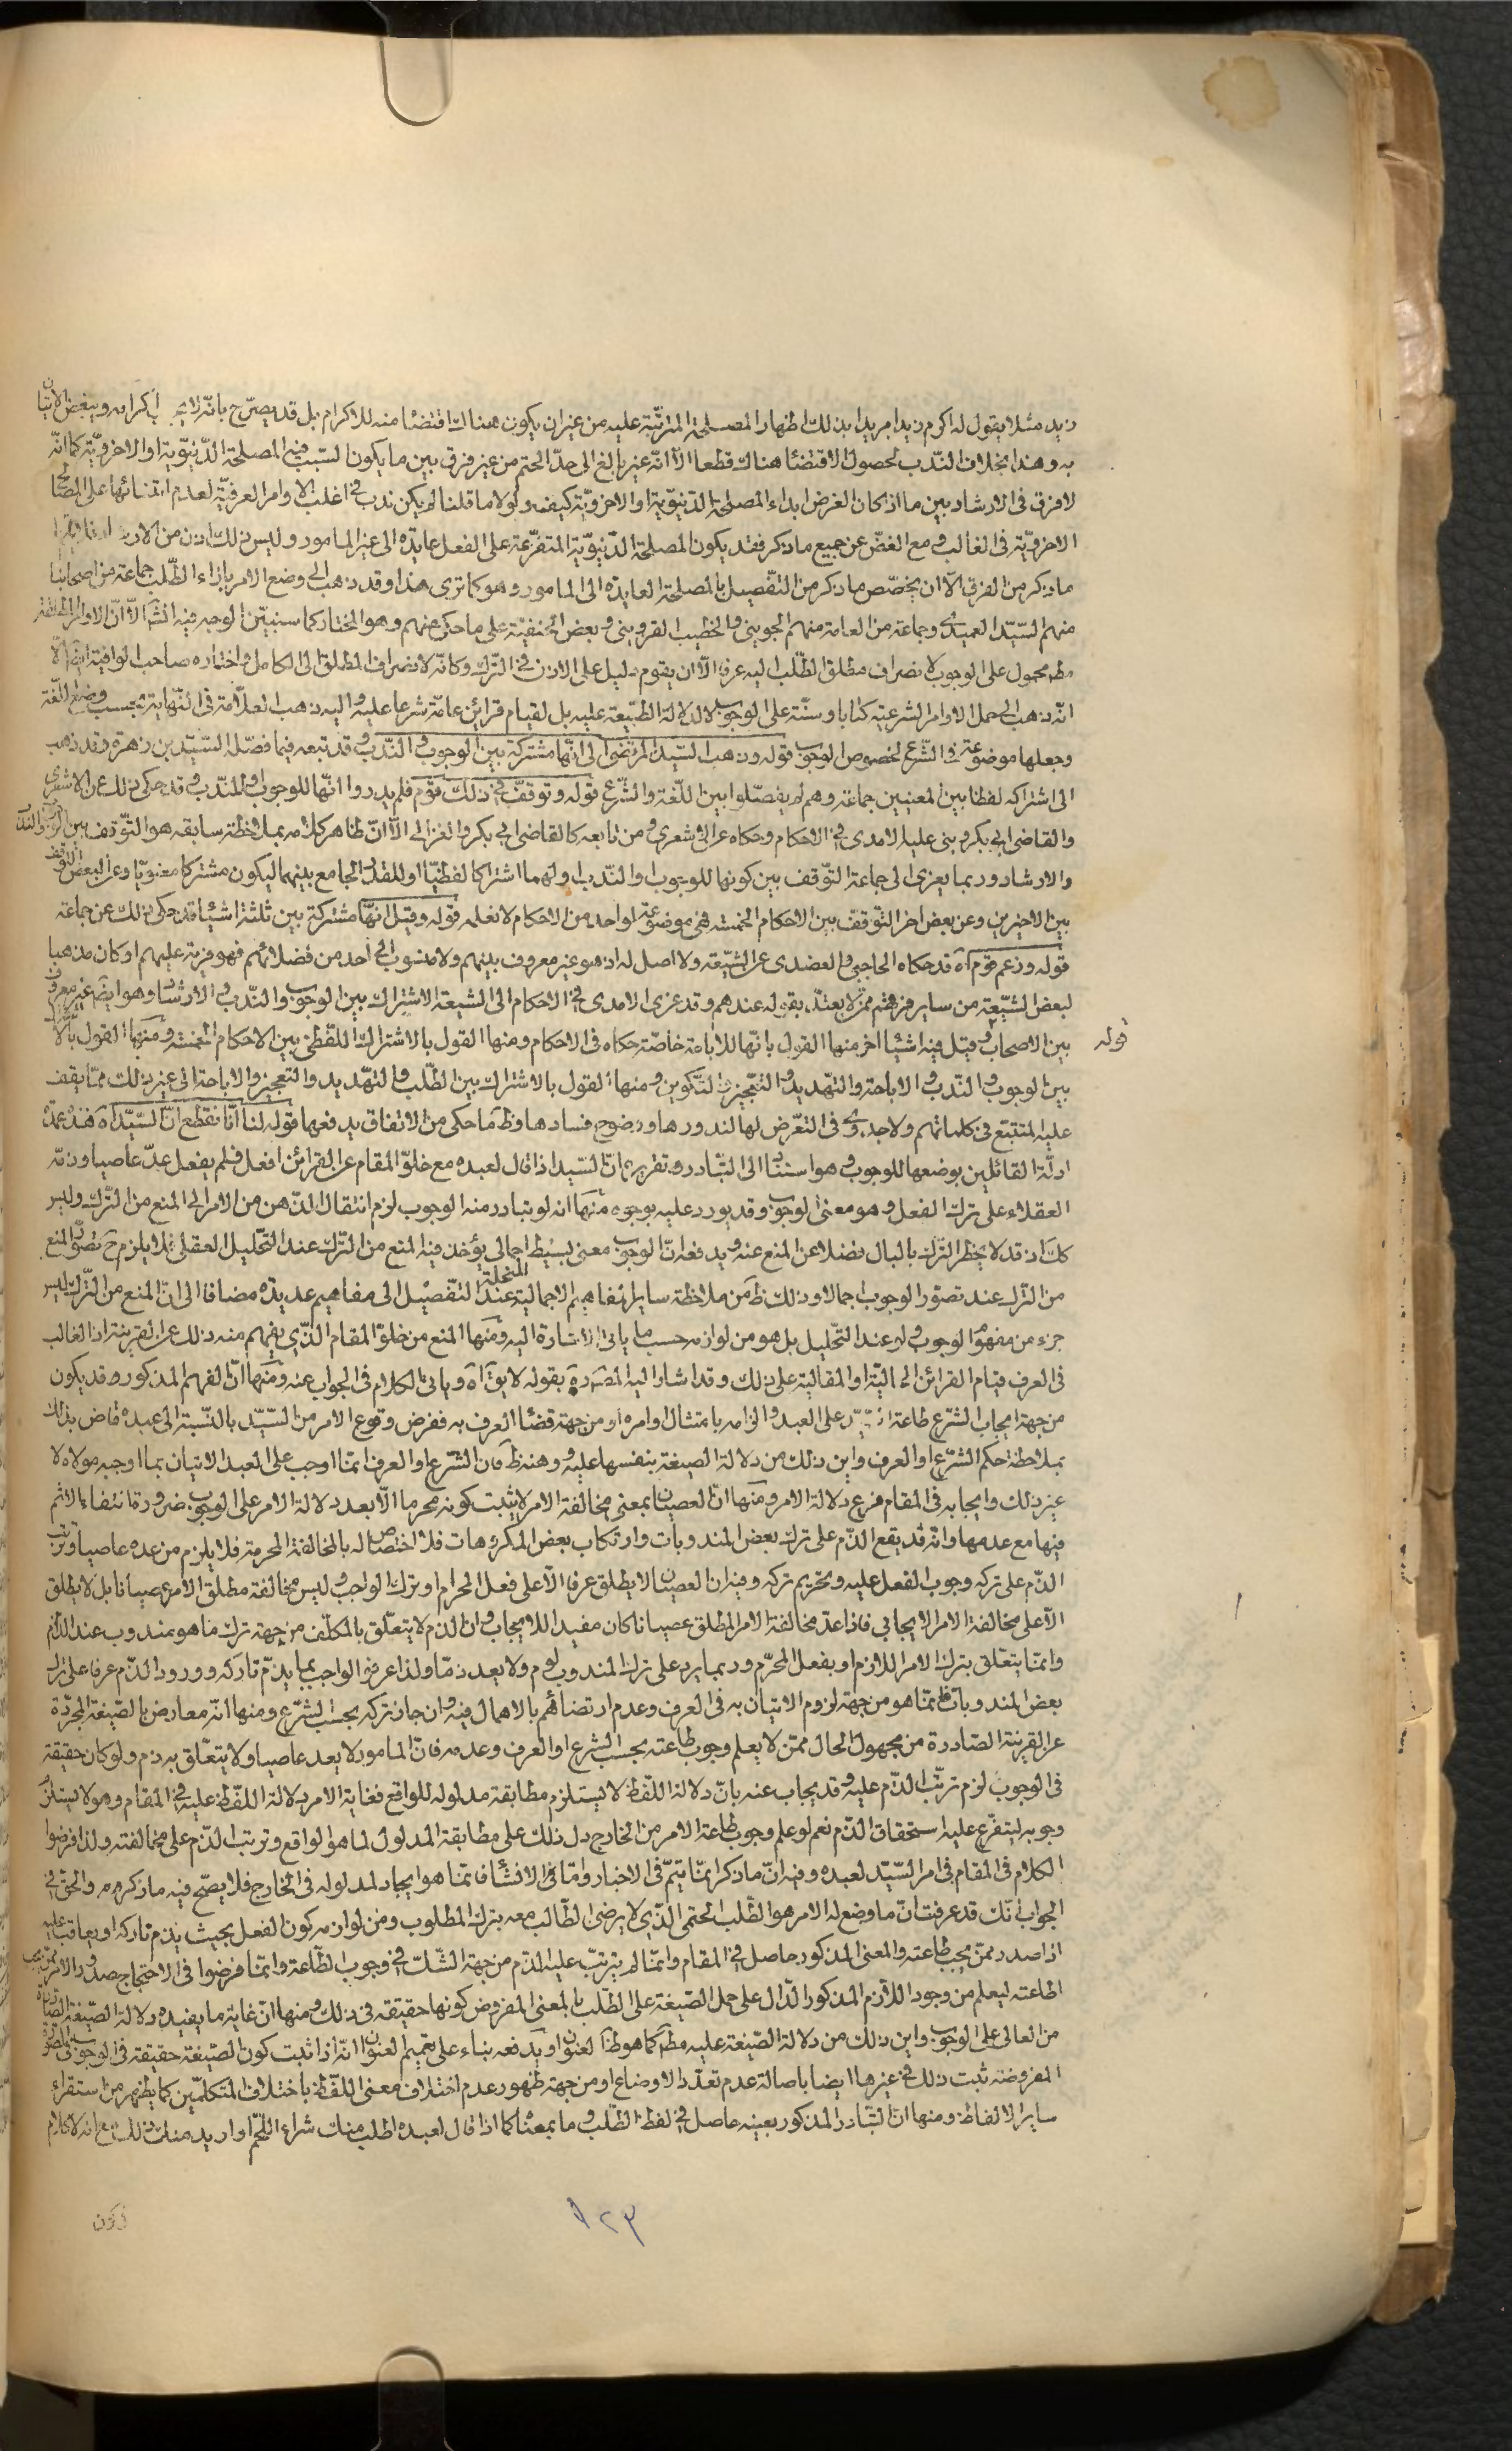 زيد مثلا يقول له اكرم زيدا مريدا بذلك اظهار المصلحة المترتّبة عليه من غير ان يكون هناك اقتضاء منه للاكرام بل قد يصرّح بانّه لا يجب اكرامه ويبغض الاتيان
به وهذا بخلاف النّدب لحصول الاقتضاء هناك قطعا الّا انّه غير بالغ الى حدّ الحتم من غير فرق بين ما يكون السّبب فيه المصلحة الدّنيويّة او الاخرويّة كما انّه
لا فرق فى الارشاد بين ما اذا كان الغرض ابداء المصلحة الدّنيويّة او الاخرويّة كيف ولولا ما قلنا لم يكن ندب فى اغلب الاوامر العرفيّة لعدم ابتنائها على المصالح
الاخرويّة فى الغالب ومع الغضّ عن جميع ما ذكر فقد يكون المصلحة الدّنيويّة المتفرّعة على الفعل عايدة الى غير المامور وليس ذلك اذن من الارشاد
ما ذكر من الفرق الّا ان يخصّص ما ذكر من التّفصيل بالمصلحة العايدة الى المامور وهو كما ترى هذا وقد ذهب الى وضع الامر بازاء الطّلب جماعة من اصحابنا
منهم السّيّد العميدى وجماعة من العامة منهم الجوينى والخطيب القزوينى وبعض الحنفيّة على ما حكى عنهم وهو المختار كما سنبيّن الوجه فيه انشا الّا انّ الاوامر المطلقة
مط محمول على الوجوب لانصراف مطلق الطّلب اليه عرفا الّا ان يقوم دليل على الاذن فى التّرك وكانّه لانصراف المطلق الى الكامل واختاره صاحب الوافية ايضا الّا
انّه ذهب الى حمل الاوامر الشرعيّة كتابا وسنّة على الوجوب لا لدلالة الطّبيعة عليه بل لقيام قرائن عامّة شرعا عليه واليه ذهب العلّامة فى النّهاية بحسب وضع اللّغة
وجعلها موضوعة فى الشّرع لخصوص الوجوب قوله وذهب السّيّد المرتضى الى انّها مشتركة بين الوجوب والنّدب وقد تبعه فيما فصّله السّيّد بن زهرة وقد ذهب
الى اشتراكه لفظا بين المعنيين جماعة وهم لم يفصّلوا بين اللّغة والشّرع قوله وتوقّف فى ذلك قوم فلم يدروا انّها للوجوب او للنّدب وقد حكى ذلك عن الاشعرى
والقاضى ابى بكر وبنى عليه الامدى فى الاحكام وحكاه عن الاشعرى ومن تابعه كالقاضى ابى بكر والغزالى الّا انّ ظاهر كلامه بملاحظة سابقه هو التّوقف بين الوجوب والندب
والارشاد وربما يعزى الى جماعة التّوقف بين كونها للوجوب او النّدب او لهما اشتراكا لفظيّا او للقدر الجامع بينهما ليكون مشتركا معنويّا وعن البعض التوقف
بين الاخيرين وعن بعض اخر التّوقف بين الاحكام الخمسة فهى موضوعة لواحد من الاحكام لا نعلمه قوله وقيل انّها مشتركة بين ثلثة اشياء قد حكى ذلك عن جماعة
قوله وزعم قوم اه قد حكاه الحاجبى والعضدى عن الشّيعة ولا اصل له اذ هو غير معروف بينهم ولا منسوب الى احد من فضلائهم فهو فرية عليهم او كان مذهبا
لبعض الشّيعة من ساير فرقهم ممّن لا يعتدّ بقوله عندهم وقد عزى الامدى فى الاحكام الى الشيعة الاشتراك بين الوجوب والنّدب والارشاد وهو ايضا غير معروف
قوله
بين الاصحاب وقيل فيه اشياء اخر منها القول بانّها للاباحة خاصّة حكاه فى الاحكام ومنها القول بالاشتراك اللّفظى بين الاحكام الخمسة ومنها القول بالاشتراك
بين الوجوب والنّدب والاباحة والتهديد والتّعجيز والتّكوين ومنها القول بالاشتراك بين الطّلب والتّهديد والتعجيز والاباحة الى غير ذلك ممّا يقف
عليه المتتبّع فى كلماتهم ولا جدوى فى التعرّض لها لندورها ووضوح فسادها وظ ما حكى من الاتفاق يدفعها قوله لنا انّا نقطع انّ السّيّد اه هذه عمدة
ادلّة القائلين بوضعها للوجوب وهو استناد الى التّبادر وتقريره انّ السّيد اذا قال لعبده مع خلوّ المقام عن القرائن افعل فلم يفعل عدّ عاصيا وذمّه
العقلاء على ترك الفعل وهو معنى الوجوب وقد يورد عليه بوجوه منها انه لو تبادر منه الوجوب لزم انتقال الذّهن من الامر الى المنع من التّرك وليس
كك اذ قد لا يخطر التّرك بالبال فضلا عن المنع عنه ويدفعه انّ الوجوب معنى بسيط اجمالى يؤخذ فيه المنع من التّرك عند التّحليل العقلى فلا يلزم ح تصوّر المنع
من التّرك عند تصوّر الوجوب اجمالا وذلك ظ من ملاحظة ساير المفاهيم الاجمالية المنحلة عند التّفصيل الى مفاهيم عديدة مضافا الى انّ المنع من التّرك ليس
جزء من مفهوم الوجوب ولو عند التّحليل بل هو من لوازمه حسب ما ياتى الاشارة اليه ومنها المنع من خلوّ المقام الّذى يفهم منه ذلك عن القرينة اذ الغالب
فى العرف قيام القرائن الحاليّة او المقالية على ذلك وقد اشار اليه المصره بقوله لا يقال اه وياتى الكلام فى الجواب عنه ومنها انّ الفهم المذكور قد يكون
من جهة ايجاب الشرع طاعة السّيّد على العبد والزامه بامتثال اوامره او من جهة قضاء العرف به ففرض وقوع الامر من السّيّد بالنّسبة الى عبده قاض بذلك
بملاحظة حكم الشّرع او العرف واين ذلك من دلالة الصيغة بنفسها عليه وهنه ظ فان الشّرع او العرف انّما اوجب على العبد الاتيان بما اوجبه مولاه لا
غير ذلك وايجابه فى المقام فرع دلالة الامر ومنها انّ العصيان بمعنى مخالفة الامر لا يثبت كونه محرما الّا بعد دلالة الامر على الوجوب ضرورة انتفاء الاثم
فيها مع عدمها وانّه قد يقع الذّم على ترك بعض المندوبات وارتكاب بعض المكروهات فلا اختصاص له بالمخالفة المحرمة فلا يلزم من عده عاصيا وترتب
الذّم على تركه وجوب الفعل عليه وتحريم تركه وفيه ان العصيان لا يطلق عرفا الّا على فعل الحرام او ترك الواجب وليس مخالفة مطلق الامر عصيانا بل لا يطلق
الّا على مخالفة الامر الايجابى فاذا عدّ مخالفة الامر المطلق عصيانا كان مفيدا للايجاب وان الذم لا يتعلّق بالمكلّف من جهة ترك ما هو مندوب عند الذّام
وانّما يتعلّق بترك الامر اللازم او بفعل المحرّم وربما يرد على ترك المندوب لوم ولا يعد ذمّا ولذا عرّفوا الواجب بما يذمّ تاركه وورود الذّم عرفا على ترك
بعض المندوبات فانّما هو من جهة لزوم الاتيان به فى العرف وعدم ارتضائهم بالاهمال فيه وان جاز تركه بحسب الشّرع ومنها انّه معارض بالصّيغة المجرّدة
عن القرينة الصّادرة من مجهول الحال ممّن لا يعلم وجوب طاعته بحسب الشرع او العرف وعدمه فانّ المامور لا يعد عاصيا ولا يتعلّق به ذم ولو كان حقيقة
فى الوجوب لزم ترتّب الذّم عليه وقد يجاب عنه بانّ دلالة اللّفظ لا يستلزم مطابقة مدلوله للواقع فغاية الامر دلالة اللّفظ عليه فى المقام وهو لا يستلزم
وجوبه ليتفرّع عليه استحقاق الذّم نعم لو علم وجوب طاعة الامر من الخارج دل ذلك على مطابقة المدلول لما هو الواقع وترتب الذّم على مخالفته ولذا فرضوا
الكلام فى المقام فى امر السّيّد لعبده وفيه انّ ما ذكر انّما يتمّ فى الاخبار وامّا فى الانشاء فانّما هو ايجاد لمدلوله فى الخارج فلا يصحّ فيه ما ذكر ومه والحق فى
الجواب انّك قد عرفت انّ ما وضع له الامر هو الطّلب الحتمى الّذى لا يرضى الطّالب معه بترك المطلوب ومن لوازمه كون الفعل بحيث يذم تاركه او يعاقب عليه
اذا صدر ممّن يجب طاعته والمعنى المذكور حاصل فى المقام وانّما لم يترتّب عليه الذّم من جهة الشّك فى وجوب الطّاعة وانّما فرضوا فى الاحتجاج صدور الامر ممّن يجب
اطاعته ليعلم من وجود اللّازم المذكور الدّال على حمل الصّيغة على الطّلب بالمعنى المفروض كونها حقيقة فى ذلك ومنها انّ غاية ما يفيده دلالة الصّيغة الصّادرة
من العالى على الوجوب واين ذلك من دلالة الصّيغة عليه مط كما هو ظ العنوان ويدفعه بناء على تعميم العنوان انّه اذا ثبت كون الصّيغة حقيقة فى الوجوب فى الصورة
المفروضة ثبت ذلك فى غيرها ايضا باصالة عدم تعدّد الاوضاع او من جهة ظهور عدم اختلاف معنى اللّفظ باختلاف المتكلّمين كما يظهر من استقراء
ساير الالفاظ ومنها انّ التّبادر المذكور بعينه حاصل فى لفظ الطّلب وما بمعناه كما اذا قال لعبده اطلب منك شراء اللّحم او اريد منك ذلك مع انّه لا كلام
٨٢٣
فى كون